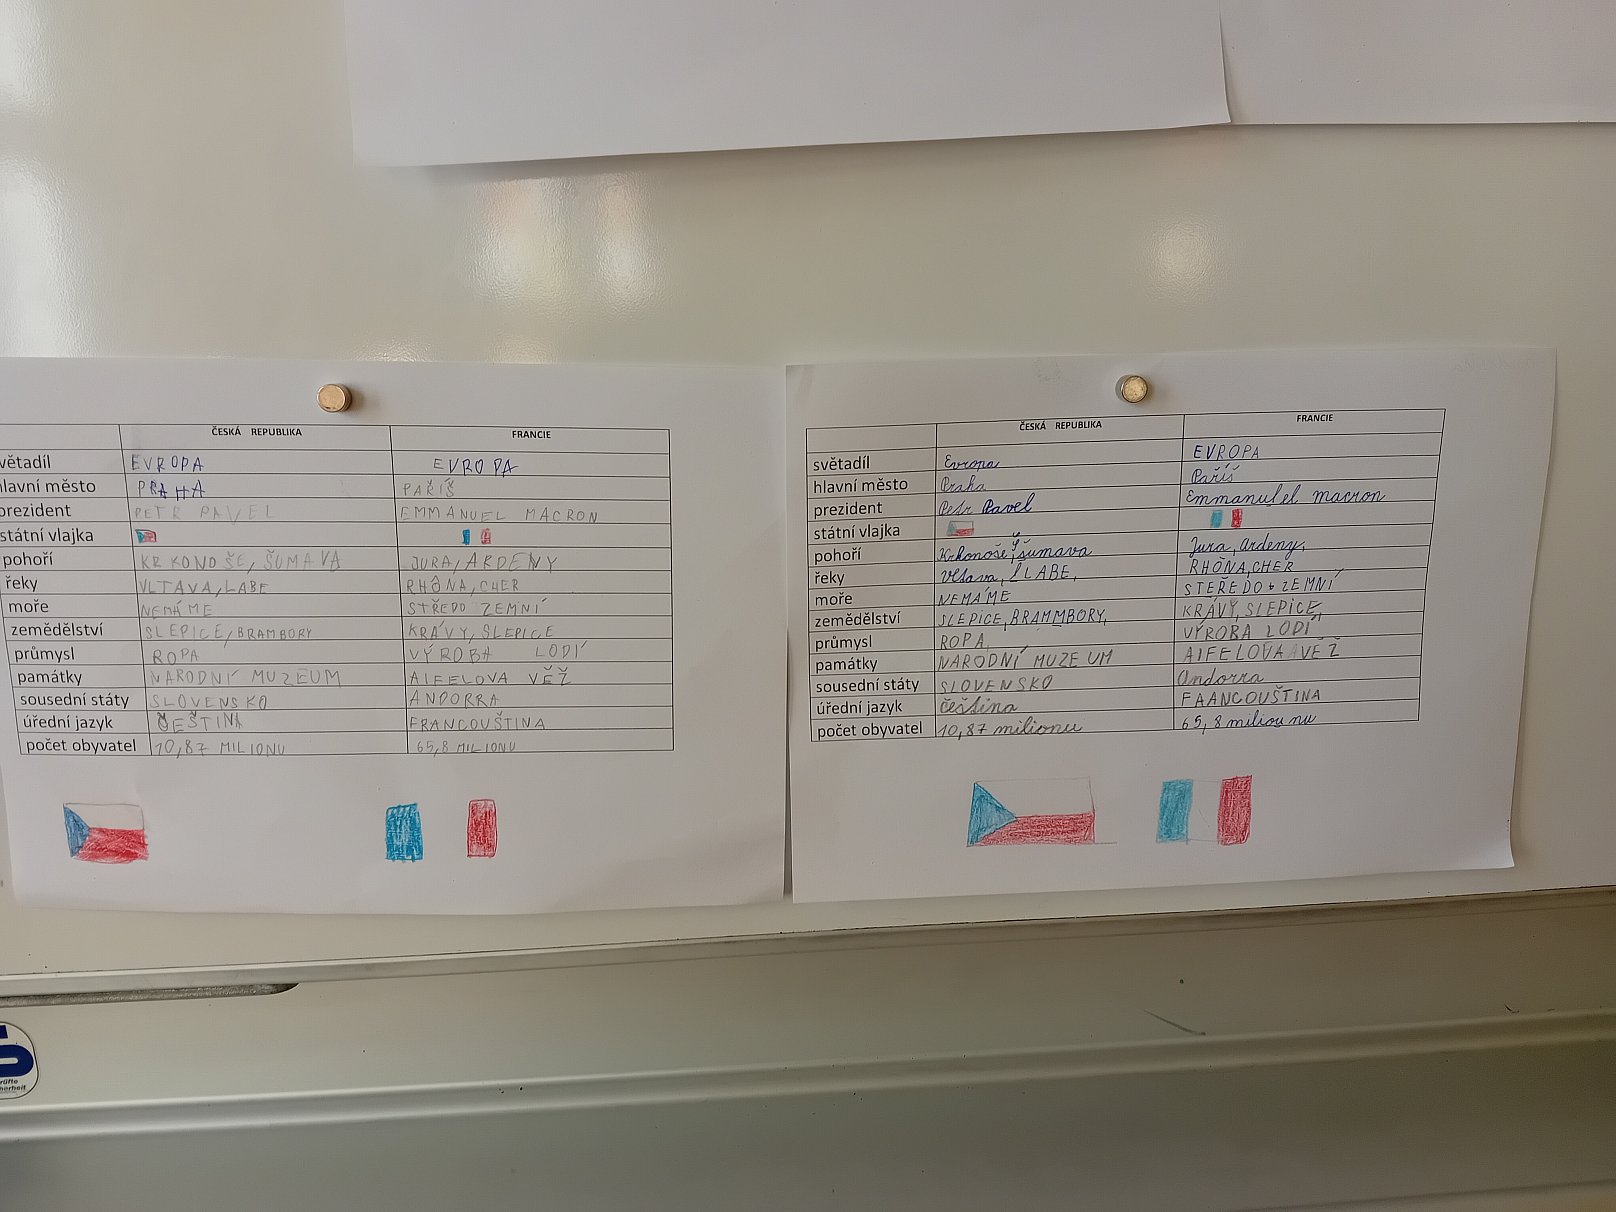 ČESKÁ REPUBLIKA FRANCIE
větadíl EVROPA EVROPA
hlavní město PRAHA PAŘÍŠ
prezident PETR PAVEL EMMANUEL MACRON
státní vlajka
pohoří KRKONOŠE, ŠUMAVA JURA, ARDENY
řeky VLTAVA, LABE RHÔNA, CHER
moře NEMÁME STŘEDO ZEMNÍ
zemědělství SLEPICE, BRAMBORY KRÁVY, SLEPICE
průmysl ROPA VÝROBA LODÍ
památky NÁRODNÍ MUZEUM AIFELOVA VĚŽ
sousední státy SLOVENSKO ANDORRA
úřední jazyk ČEŠTINA FRANCOUŠTINA
počet obyvatel 10,87 MILIONU 65,8 MILIONU
ČESKÁ REPUBLIKA FRANCIE
světadíl Evropa EVROPA
hlavní město Praha Paříš
prezident Petr Pavel Emmanuel macron
státní vlajka
pohoří Krkonoše, šumava Jura, Ardeny,
řeky Vltava, LABE, RHÔNA, CHER
moře NEMÁME STEŘEDO ZEMNÍ
zemědělství SLEPICE, BRAMMBORY, KRÁVY, SLEPICE
průmysl ROPA, VÝROBA LODÍ
památky NÁRODNÍ MUZEUM AIFELOVA VĚŽ
sousední státy SLOVENSKO Andorra
úřední jazyk čeština FAANCOUŠTINA
počet obyvatel 10,87 milionu 65,8 miliounu